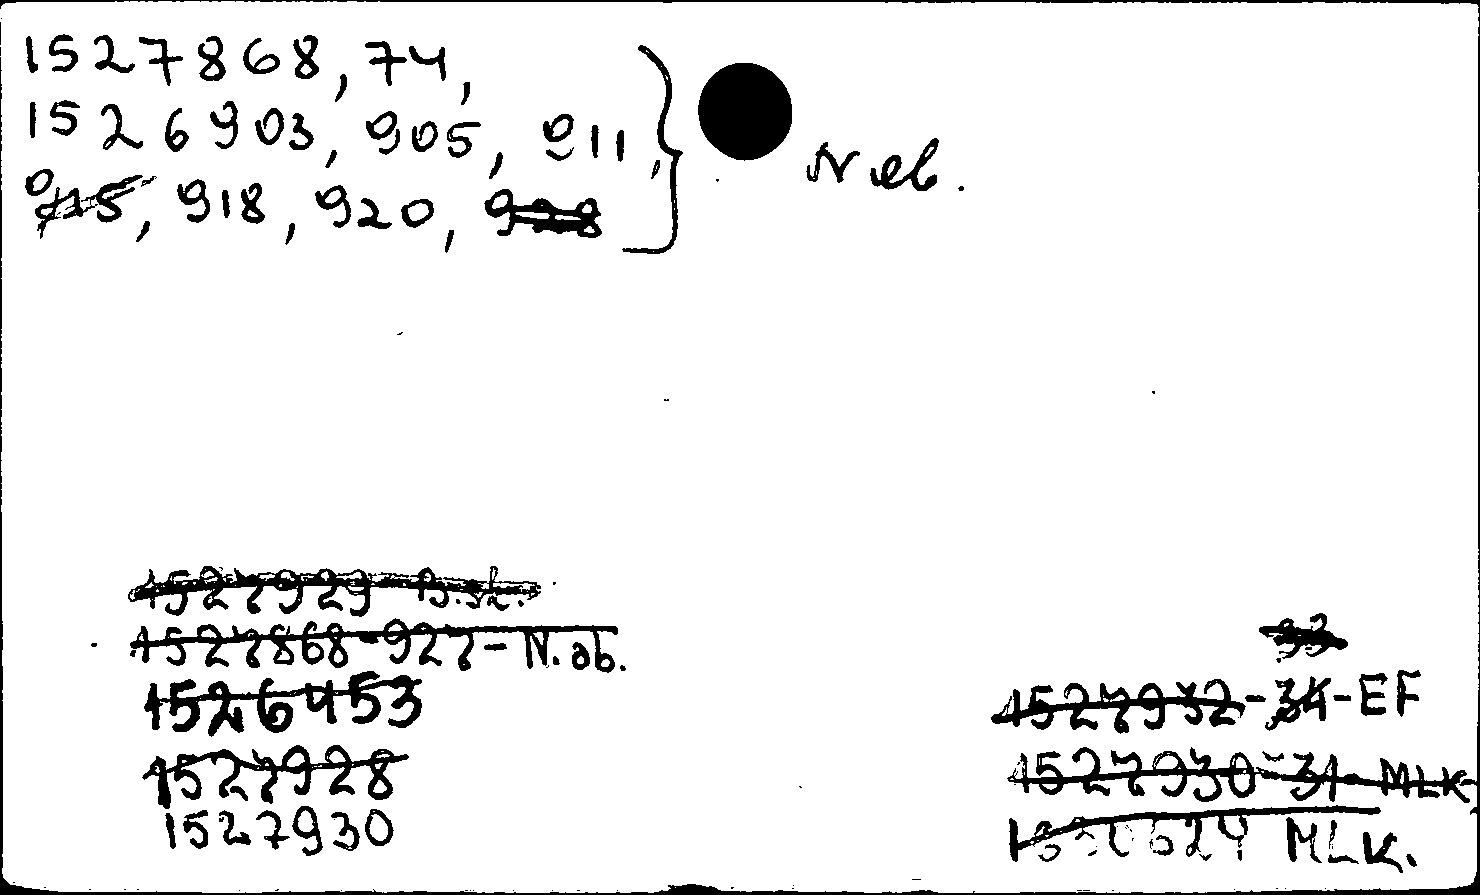 1527868, 74,
1526903, 905, 911,
915, 918, 920, 928
Neb.
1527929
1527868-927-N.ab.
1526453
1527928
1527930
33
1527932-34-EF
1527930-31-MLK-
1530624 MLK.